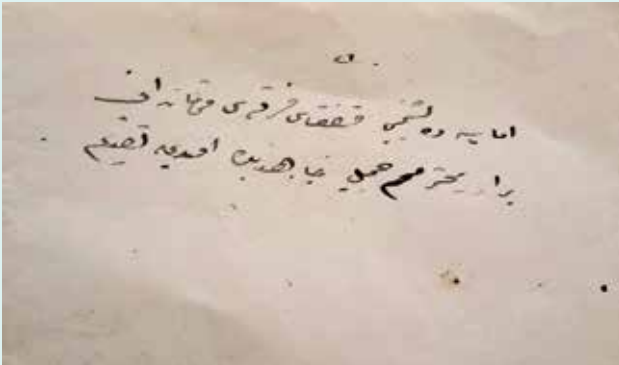 اماسیه ده بشنجی قفقاس فرقه سی قوماندانی
برادر محترمم جمیل جاهد بك افندی یه تقدیم